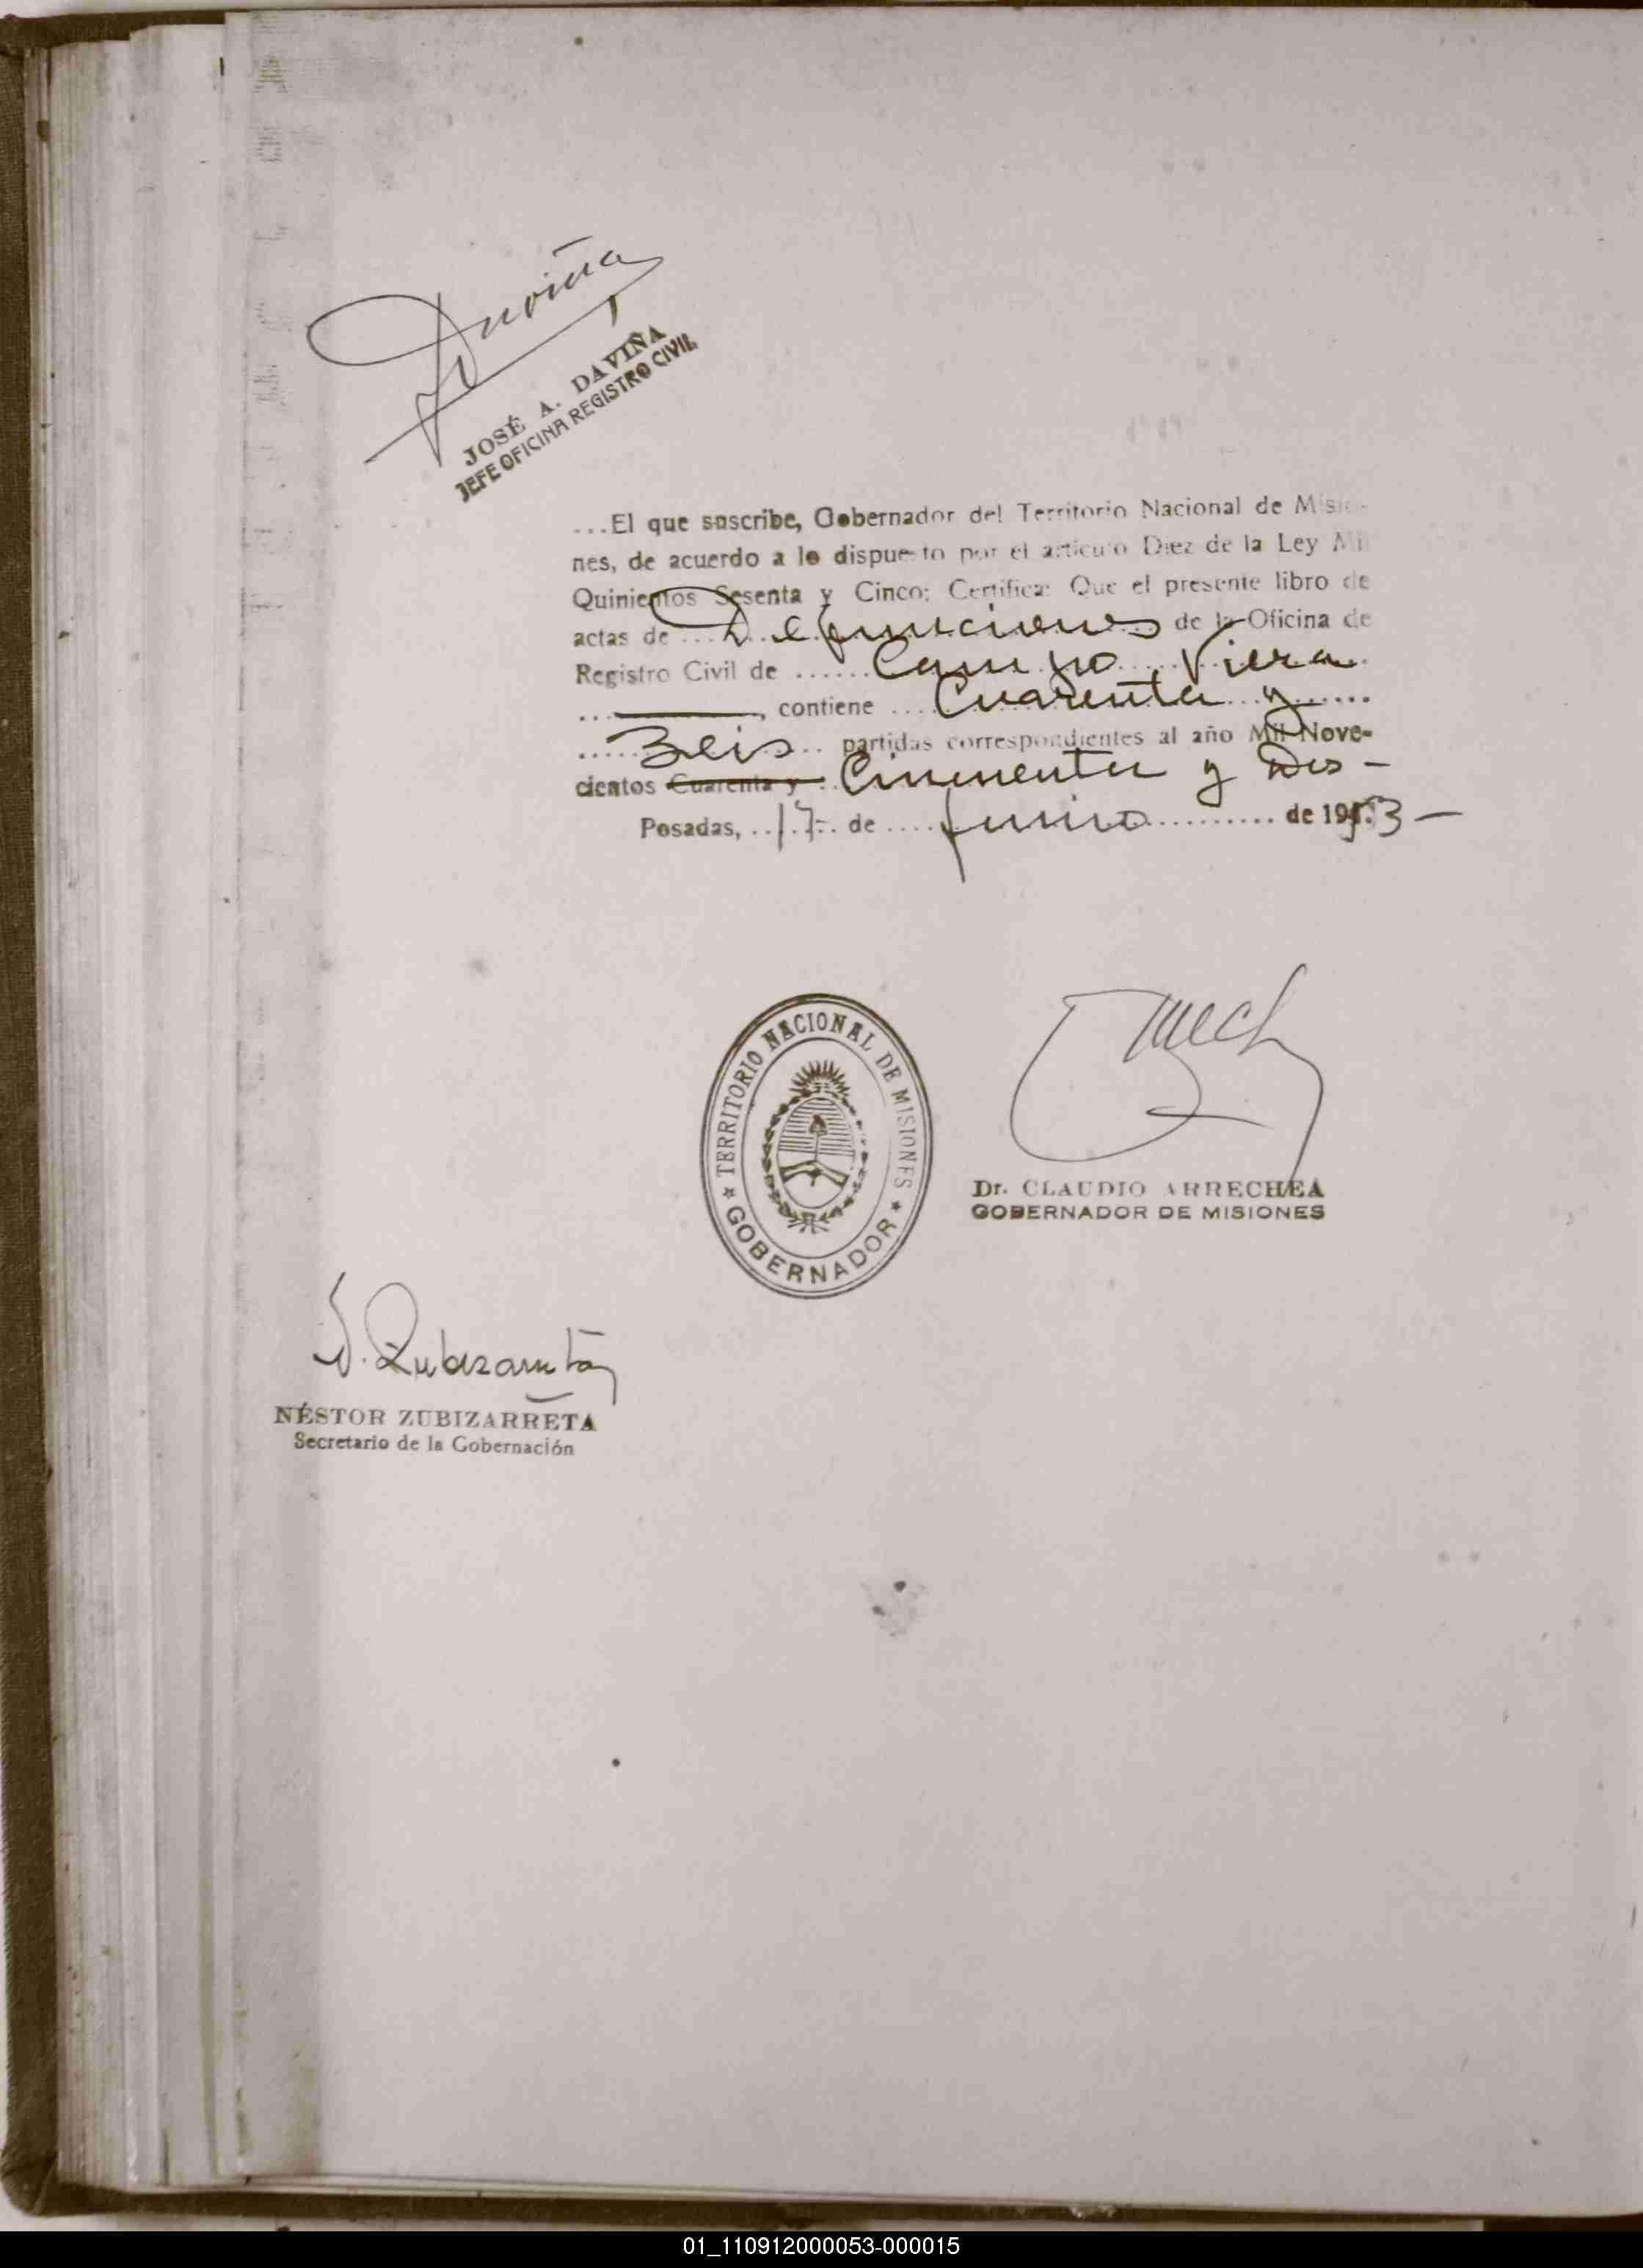 Daviña
JOSÉ A. DAVIÑA
JEFE OFICINA REGISTRO CIVIL
...El que suscribe, Gobernador del Territorio Nacional de Misio-
nes, de acuerdo a lo dispuesto por el artículo Diez de la Ley Mil
Quinientos Sesenta y Cinco; Certifica: Que el presente libro de
actas de ... Defunciones ... de la Oficina de
Registro Civil de ...... Campo Viera
..., contiene .... Cuarenta y ......
..... Seis ... partidas correspondientes al año Mil Nove-
cientos Cuarenta y .. Cincuenta y Dos -
Posadas, .. 17 .. de .... Junio .......... de 1953 -
TERRITORIO NACIONAL DE MISIONES
GOBERNADOR
Dr. CLAUDIO ARRECHEA
GOBERNADOR DE MISIONES
N. Zubizarreta
NÉSTOR ZUBIZARRETA
Secretario de la Gobernación
01_110912000053-000015